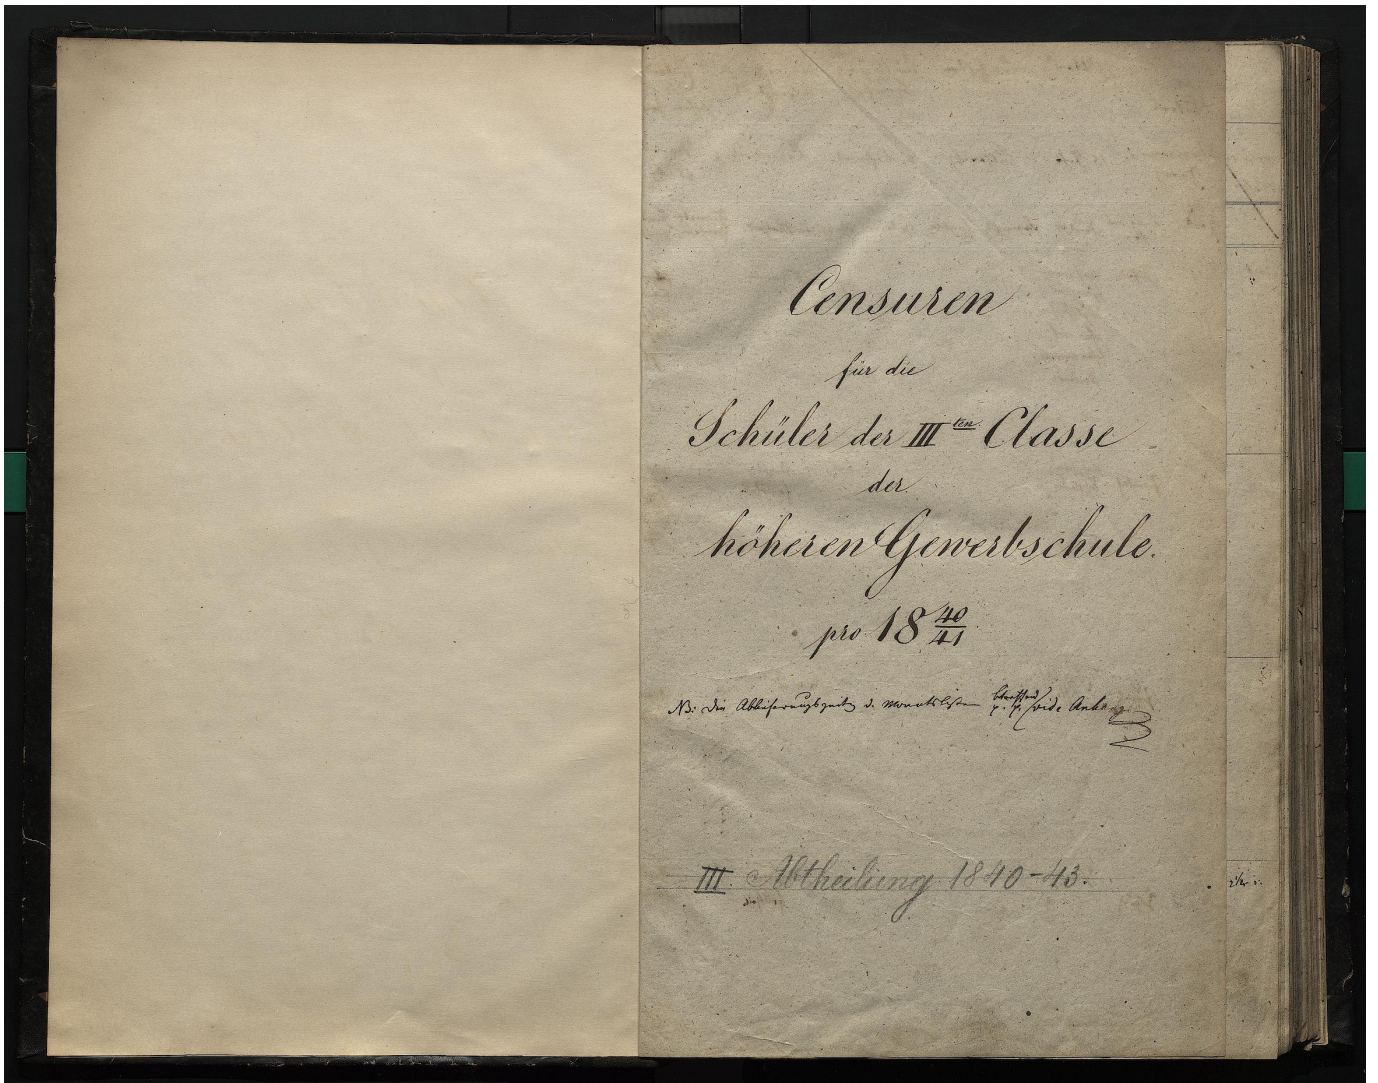 Censuren
für die
Schüler der III ten Classe
der
höheren Gewerbschule.
pro 18 40/41
NB: die Ablieferungszeit d. Monatslisten betreffend p. p. vide Anhang
III. Abtheilung 1840-43.